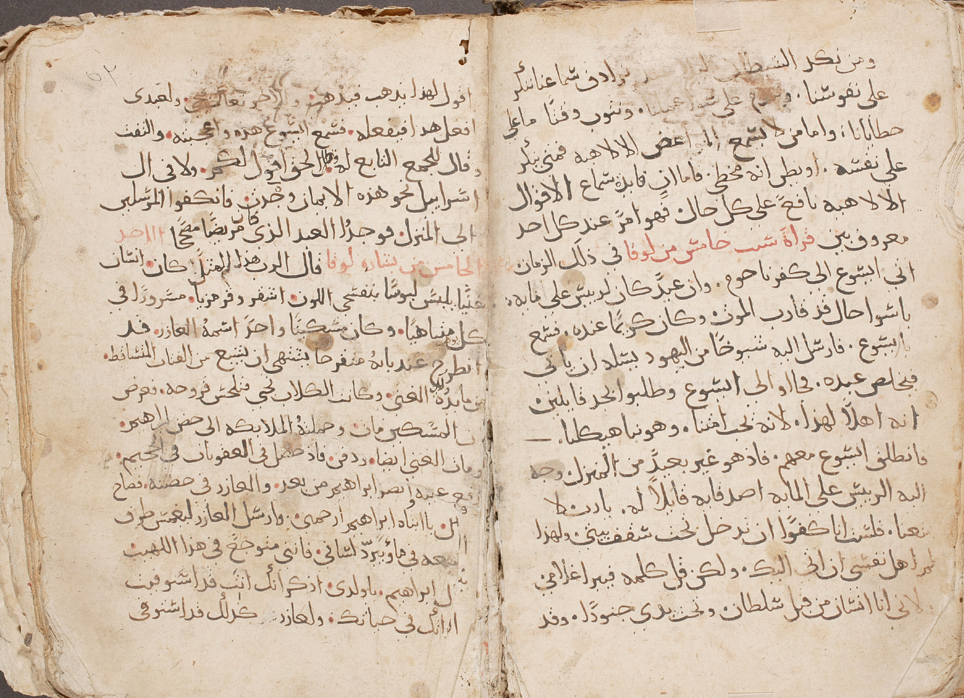 ومن نكد الشيطان
على نفوسنا. على شر اعمالنا. ونتوب وقتًا ما على
خطايانا. واما من لا يسمع بعض الالاهيه فمتى يتأثر
على نفسه. او يظن انه مخطي. فاما ان قايدة سماع الاقوال
الالاهيه نافع على كل حال. فهو امرً عند كل احد
معروف بين قراة سبت خامس من لوقا في ذلك الزمان
اتى ايسوع الى كفرناحوم. وان عبدً كان لرييس على مايه.
باسوا حال قد قارب الموت وكان كريمًا عنده. فسمع
بايسوع. فارسل اليه شيوخًا من اليهود يسله ان ياتي
فيخلص عبده. فجااو الى ايسوع وطلبوا الجد قايلين
انه اهلًا لهذا. لانه يحب امتنا. وهو بنا هيكلنا.
فانطلق ايسوع معهم. فاذ هو غير بعيدً من المنزل. وجه
اليه الرييس على المايه اصدقايه قايلًا له. يارب لا
تتعنا. فلست انا كفوًا ان تدخل تحت سقف بيتي ولهذا
لم اهل نفسي ان اتي اليك. ولكن قل كلمه فيبرا غلامي
لاني انا انسان من قبل سلطان. وتحت يدي جنودً. وقد
اقول لهذا يذهب فيذهب. ولاخر تعال فيجي. ولعبدي
افعل هذا فيفعله. فسمع ايسوع هذه واعجبته. والتفت
وقال للجمع التابع له. الحق اقول لكم. ولا في ال
اسراييل نحو هذه الايمان وجدت. فانكفوا المرسلين
الى المنزل فوجدوا العبد الذي كان مريضًا صحيحًا الاحد
الخامس من بشارة لوقا قال الرب هذا المثل. كان انسان
غنيًا يلبس لبوسًا بنفسجي اللون. اشقر وقرمزيا. مسرورًا في
كل متباهيًا. وكان مسكينًا واحدً اسمهُ العازر. قد
انطرح عند بابه متقرحا يشتهي ان يشبع من الفتات المتساقط.
من مايدة الغني. وكانت الكلاب تجي فتلحس قروحه. فعرض
ان المسكين مات. وحملتهُ الملايكه الى حضن ابراهيم.
ومات الغني ايضا. ودفن فاذ حصل في العقوبات في الجحيم.
رفع عينيه وابصر ابراهيم من بعد. والعازر في حضنه. فصاح
قايل. يا ابتاه ابراهيم ارحمني. وارسل العازر ليغمس طرف
اصبعه في ماوً يبردً لساني. فانني متوجع في هذا اللهيب
قال ابراهيم. ياولدي. اذكر انك انت قد استوفيت
اراتك في حياتك. ولعازر كذلك قد استوفى